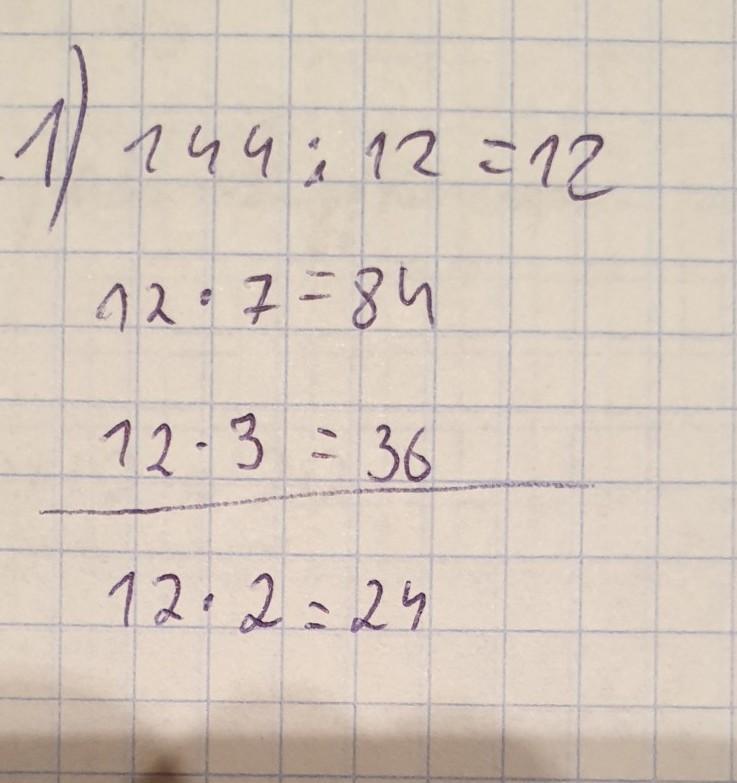 1) 144 : 12 = 12
12 · 7 = 84
12 · 3 = 36
12 · 2 = 24